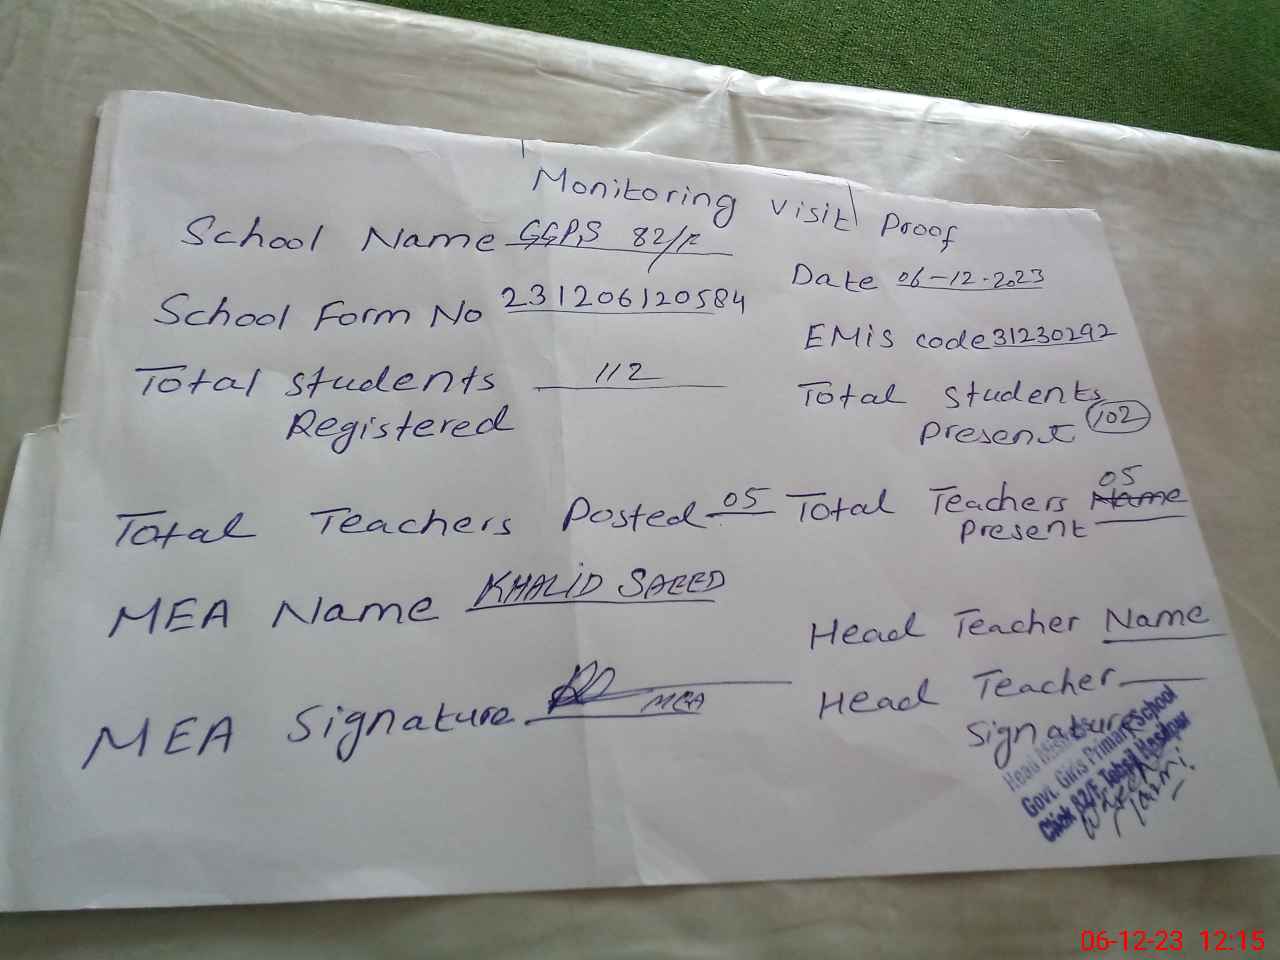 Monitoring Visit Proof
School Name GGPS 82/F
Date 06-12-2023
School Form No 231206120584
EMiS code 31230292
Total students Registered 112
Total students Present 102
Total Teachers Posted 05
Total Teachers Present 05 Name
MEA Name KHALID SAEED
Head Teacher Name
MEA Signature MEA
Head Teacher Signature
Head Mistress
Govt. Girls Primary School
Chak 82/F Tehsil Hasilpur
06-12-23 12:15